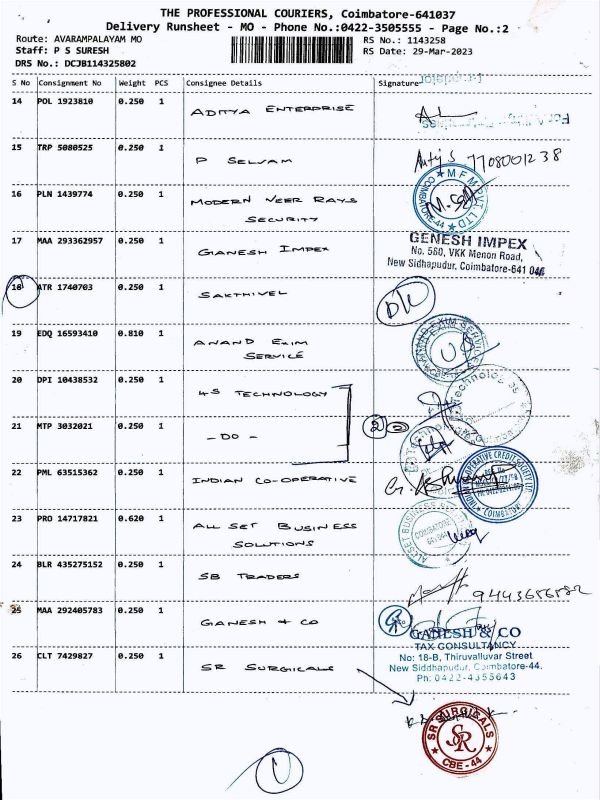 THE PROFESSIONAL COURIERS, Coimbatore-641037
Delivery Runsheet - MO - Phone No.:0422-3505555 - Page No.:2
Route: AVARAMPALAYAM MO
Staff: P S SURESH
DRS No.: DCJB114325802
RS No.: 1143258
RS Date: 29-Mar-2023
S No Consignment No Weight PCS Consignee Details Signature
14 POL 1923810 0.250 1 ADITYA ENTERPRISE
15 TRP 5080525 0.250 1 P SELVAM 7708001238
16 PLN 1439774 0.250 1 MODERN VEER RAYS
SECURITY
MFM PVT. LTD
COIMBATORE-44
17 MAA 293362957 0.250 1 GANESH IMPEX
GENESH IMPEX
No. 560, VKK Menon Road,
New Sidhapudur, Coimbatore-641 044
18 ATR 1740703 0.250 1 SAKTHIVEL
19 EDQ 16593410 0.810 1 ANAND EXIM
SERVICE
ANAND EXIM SERVICE
20 DPI 10438532 0.250 1 4S TECHNOLOGY
21 MTP 3032021 0.250 1 - DO - 2
22 PML 63515362 0.250 1 INDIAN CO-OPERATIVE
INDIAN CO-OPERATIVE CREDIT SOCIETY LTD
COIMBATORE
23 PRO 14717821 0.620 1 ALL SET BUSINESS
SOLUTIONS
ALLSET BUSINESS
COIMBATORE
24 BLR 435275152 0.250 1 SB TRADERS 9443656582
25 MAA 292405783 0.250 1 GANESH & CO
GANESH & CO
TAX CONSULTANCY
No: 18-B, Thiruvalluvar Street
New Siddhapudur, Coimbatore-44.
Ph: 0422-4355643
26 CLT 7429827 0.250 1 SR SURGICALS
SR SURGICALS
SR
CBE-44